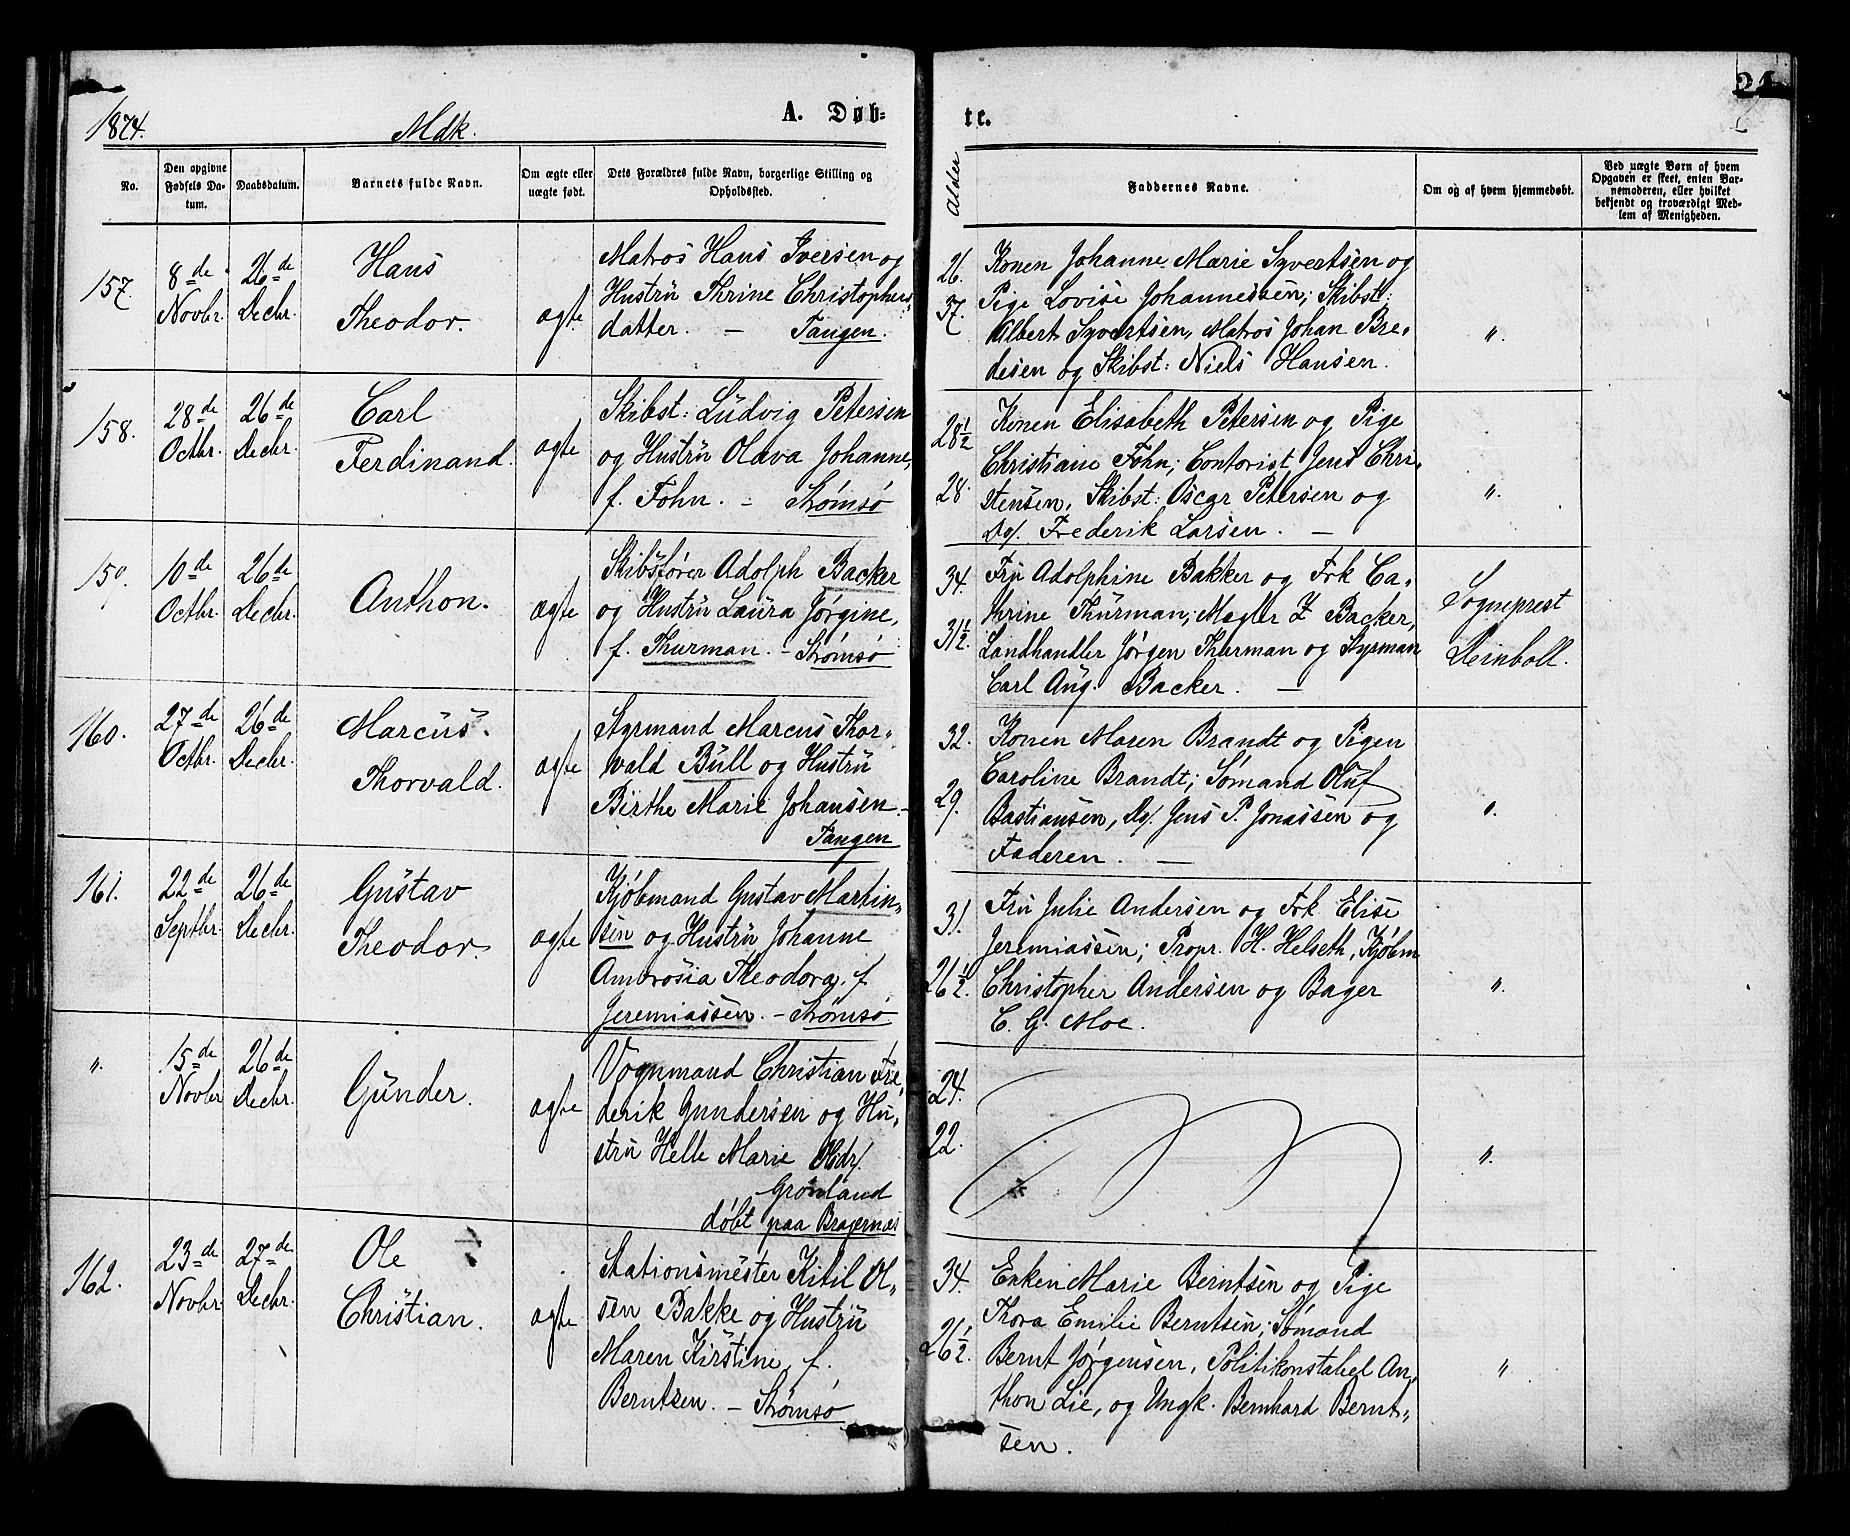 1874. Mdk. A. Døb= te.
No.
Den opgivne Fødsels Da-tum.
Daabsdatum.
Barnets fulde Navn.
Om ægte eller uægte født.
Dets Forældres fulde Navn, borgerlige Stilling og Opholdssted.
Alder
Faddernes Navne.
Om og af hvem hjemmedøbt.
Ved uægte Børn af hvem
Opgaven er skeet, enten Bar-
nemoderen, eller hvilket
bekjendt og troværdigt Med-
lem af Menigheden.
157.
8de Novbr.
26de Decbr.
Hans
Theodor.
ægte
Matros Hans Iversen og
Hustru Thrine Christophers
datter. — Tangen.
26.
37.
Konen Johanne Marie Syvertsen og
Pige Lovise Johannessen; Skibst:
Albert Syvertsen, Matros Johan Bre„
desen og Skibst: Niels Hansen.
„.
158.
28de Octbr.
26de Decbr.
Carl
Ferdinand.
ægte
Skibst: Ludvig Petersen
og Hustru Olava Johanne,
f. Fohn. — Strømsø
28½
28.
Konen Elisabeth Petersen og Pige
Christiane Fohn; Contorist Jens Chri„
stensen, Skibst: Oscar Petersen og
Do/. Frederik Larsen. —
„.
159.
10de Octbr.
26de Decbr.
Anthon.
ægte
Skibsfører Adolph Backer
og Hustru Laura Jørgine,
f. Thurman. — Strømsø
34.
31½.
Fru Adolphine Bakker og Frk Ca„
thrine Thurman; Mægler Z Backer,
Landhandler Jørgen Thurman og Styrman
Carl Aug. Backer. —
Sogneprest
Deinboll.
160.
27de Octbr.
26de Decbr.
Marcus.
Thorvald.
ægte
Styrmand Marcus Thor„
wald Bull og Hustru
Birthe Marie Johansen —
Tangen
32.
29.
Konen Maren Brandt og Pigen
Caroline Brandt; Sømand Oluf
Bastiansen, Do/. Jens P. Jonassen og
Faderen. —
„.
161.
22de Septbr.
26de Decbr.
Gustav
Theodor.
ægte
Kjøbmand Gustav Martin„
sen og Hustru Johanne
Ambrosia Theodora, f
Jeremiassen. — Strømsø
31.
26½.
Fru Julie Andersen og Frk Elise
Jeremiassen; Propr. H. Helseth, Kjøbm
Christopher Andersen og Bager
C. G. Moe.
„.
„.
15de Novbr
26de Decbr.
Gunder.
ægte
Vognmand Christian Fre„
derik Gundersen og Hu„
stru Helle Marie Olsdr/.
Grønland
døbt paa Bragernæs
24.
22.
„.
162.
23de Novbr
27de Decbr.
Ole
Christian.
ægte
Stationsmester Kitil Ol„
sen Bakke og Hustru
Maren Kirstine, f.
Berntsen. — Strømsø
34.
26½.
Enken Marie Berntsen og Pige
Thora Emilie Berntsen; Sømand
Bernt Jørgensen, Politikonstabel An„
thon Lie, og Ungk. Bernhard Bernt„
sen.
„